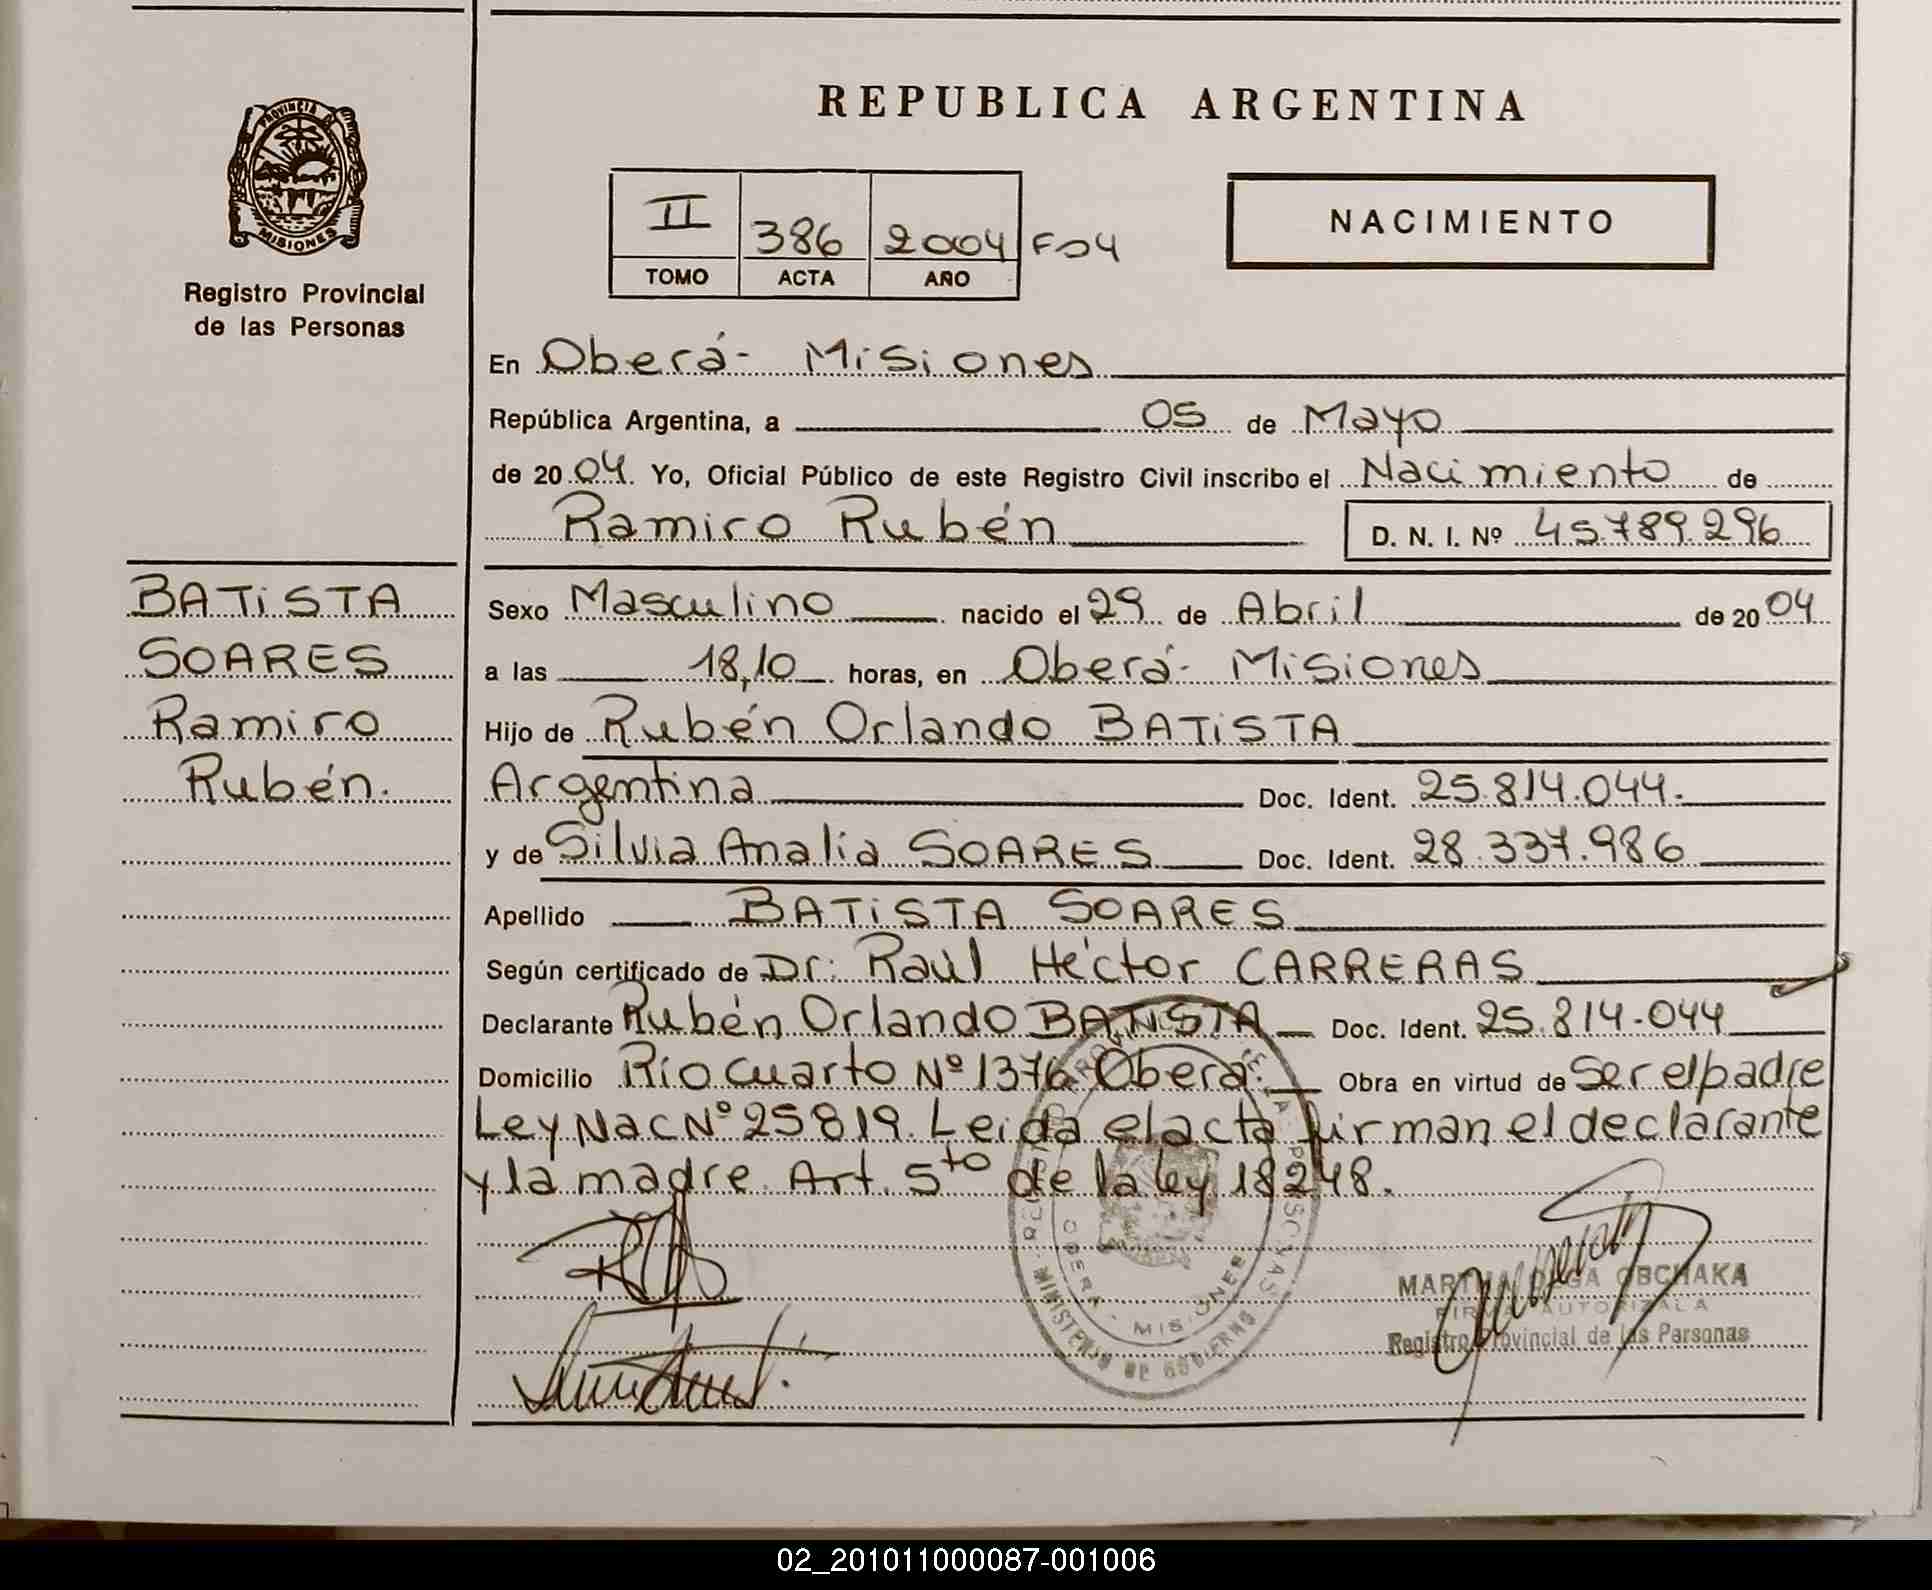 REPUBLICA ARGENTINA
PROVINCIA DE
MISIONES
Registro Provincial
de las Personas
II 386 2004 F04
TOMO ACTA AÑO
NACIMIENTO
En Oberá- Misiones
República Argentina, a 05 de Mayo
de 2004. Yo, Oficial Público de este Registro Civil inscribo el Nacimiento de
Ramiro Rubén D. N. I. Nº 45.789.296
BATiSTA
SOARES
Ramiro
Rubén.
Sexo Masculino nacido el 29 de Abril de 2004
a las 18,10 horas, en Oberá- Misiones
Hijo de Rubén Orlando BATiSTA
Argentina Doc. Ident. 25.814.044.
y de Silvia Analía SOARES Doc. Ident. 28.337.986
Apellido BATiSTA SOARES
Según certificado de Dr: Raúl Héctor CARRERAS
Declarante Rubén Orlando BATISTA Doc. Ident. 25.814.044
Domicilio Río Cuarto Nº 1376 Oberá. Obra en virtud de Ser el padre
Ley Nac Nº 25819. Leida el acta firman el declarante
y la madre. Art. 5to de la ley 18248.
OBERA - MISIONES
MINISTERIO DE GOBIERNO
OBCHAKA
FIRMA AUTORIZADA
Registro Provincial de las Personas
02_201011000087-001006